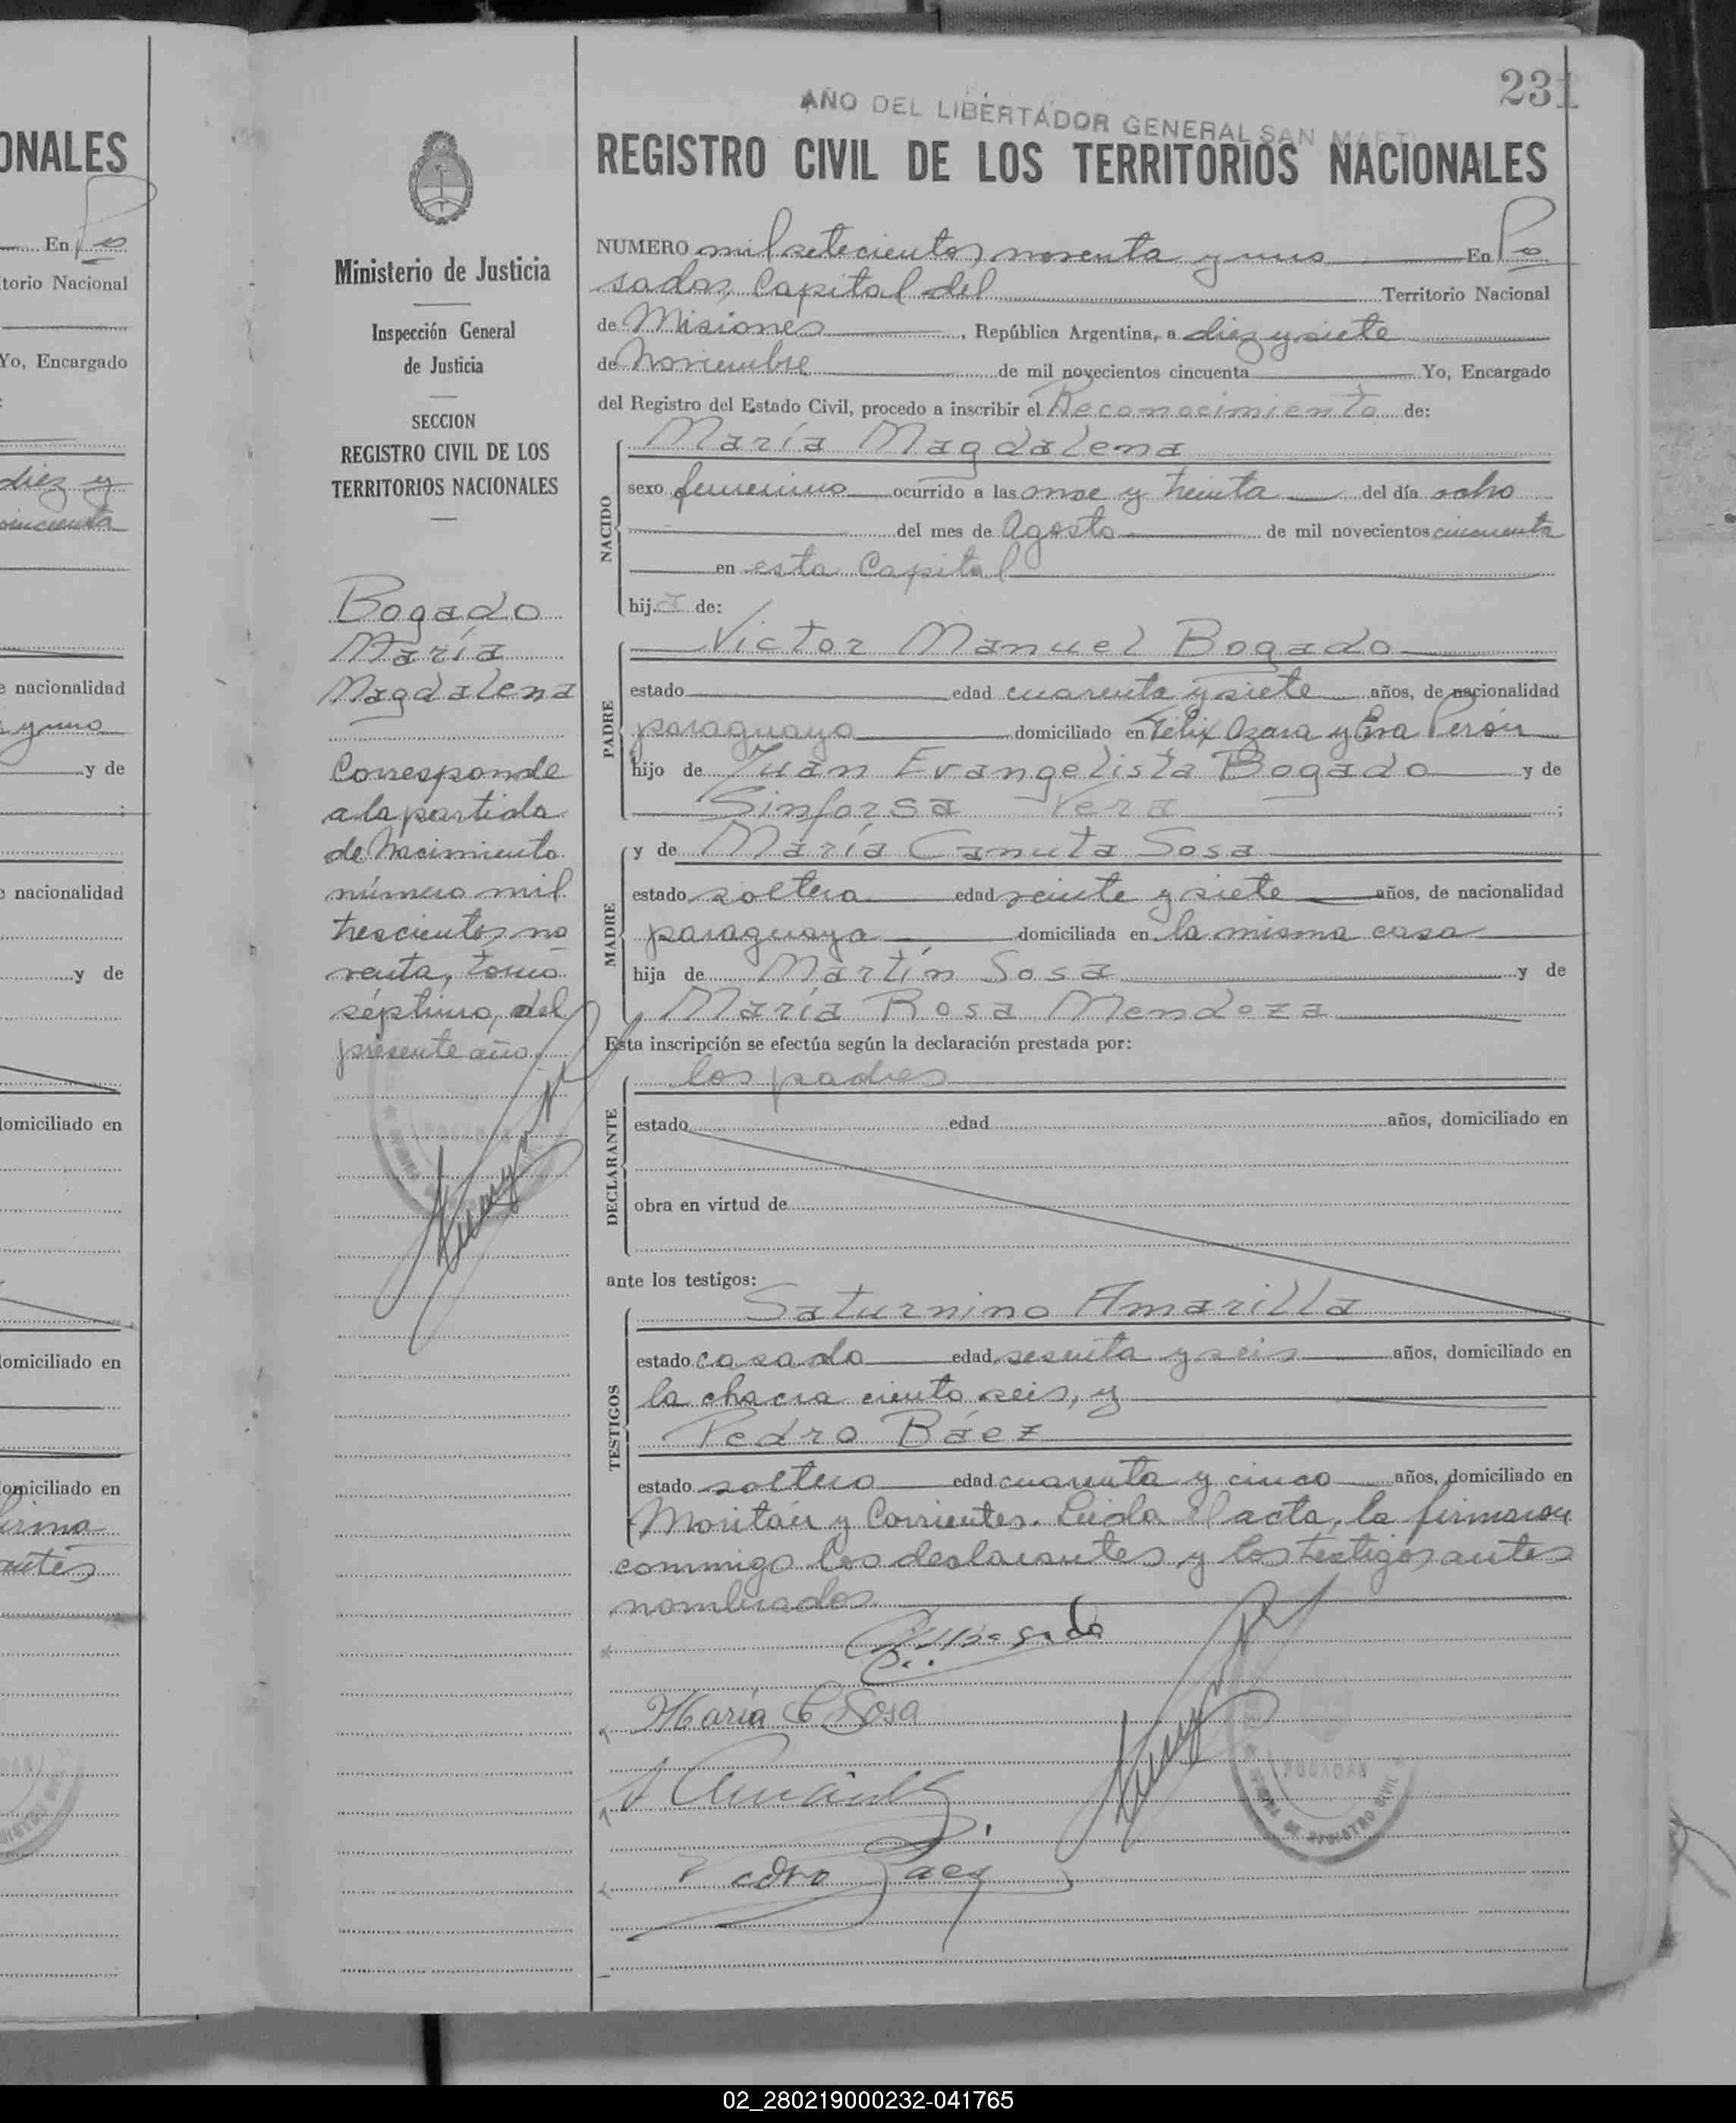 ONALES
En Po
torio Nacional
Yo, Encargado
diez y
cincuenta
e nacionalidad
y uno
y de
e nacionalidad
y de
domiciliado en
domiciliado en
domiciliado en
firma
antes
Ministerio de Justicia
Inspección General
de Justicia
SECCION
REGISTRO CIVIL DE LOS
TERRITORIOS NACIONALES
Bogado
María
Magdalena
Corresponde
a la partida
de Nacimiento
número mil
trescientos no
venta, tomo
séptimo, del
presente año.
231
AÑO DEL LIBERTADOR GENERAL SAN MARTI
REGISTRO CIVIL DE LOS TERRITORIOS NACIONALES
NUMERO mil setecientos noventa y uno En Po
sadas, Capital del Territorio Nacional
de Misiones, República Argentina, a diez y siete
de Noviembre de mil novecientos cincuenta Yo, Encargado
del Registro del Estado Civil, procedo a inscribir el Reconocimiento de:
María Magdalena
NACIDO
sexo femenino ocurrido a las once y treinta del día ocho
del mes de Agosto de mil novecientos cincuenta
en esta Capital
hija de:
Victor Manuel Bogado
PADRE
estado edad cuarenta y siete años, de nacionalidad
paraguaya domiciliado en Félix Azara y Eva Perón
hijo de Juan Evangelista Bogado y de
Sinforsa Vera;
y de María Canuta Sosa
MADRE
estado soltera edad veinte y siete años, de nacionalidad
paraguaya domiciliada en la misma casa
hija de Martín Sosa y de
María Rosa Mendoza
Esta inscripción se efectúa según la declaración prestada por:
los padres
DECLARANTE
estado edad años, domiciliado en
obra en virtud de
ante los testigos:
Saturnino Amarilla
TESTIGOS
estado casado edad sesenta y seis años, domiciliado en
la chacra ciento seis, y
Pedro Báez
estado soltero edad cuarenta y cinco años, domiciliado en
Moritán y Corrientes. Leída el acta, la firmaron
conmigo los declarantes y los testigos antes
nombrados.
María C Sosa
Pedro Baez
POSADAS
DE REGISTRO CIVIL
02_280219000232-041765